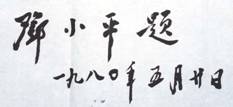 邓小平题
一九八〇年五月廿日